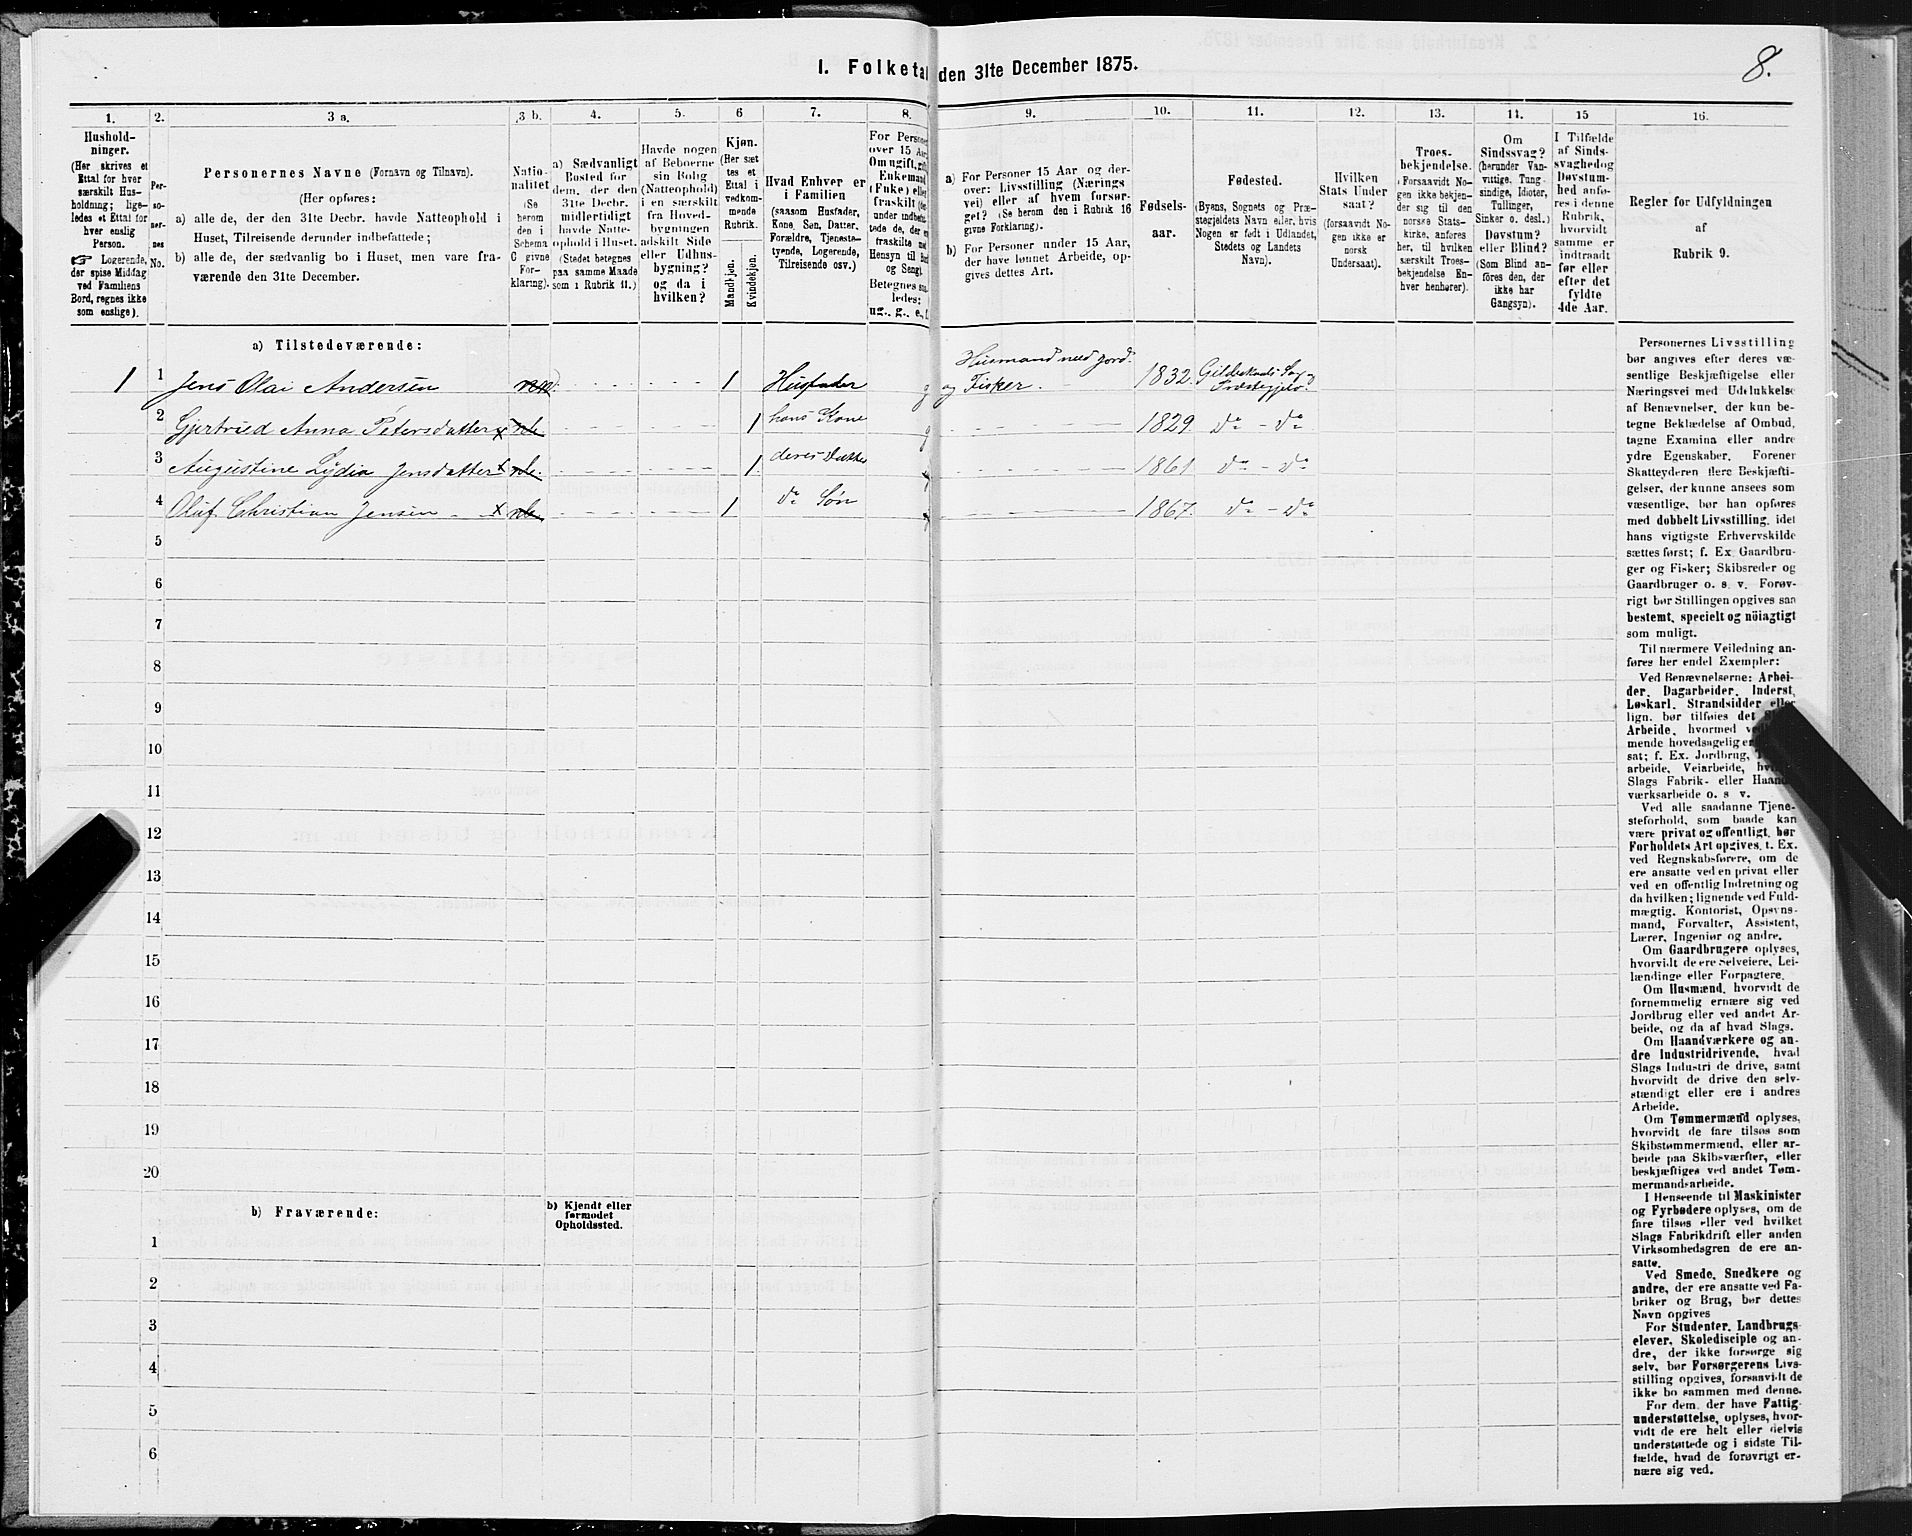 I. Folketal den 31te December 1875.
8.
1.
Hushold-
ninger.
(Her skrives et
Ettal for hver
særskilt Hus-
holdning; lige-
ledes et Ettal for
hver enslig
Person.
☞ Logerende,
der spise Middag
ved Familiens
Bord, regnes ikke
som enslige).
2.
Per-
so-
ner-
nes
No.
3 a.
Personernes Navne (Fornavn og Tilnavn).
(Her opføres:
a) alle de, der den 31te Decbr. havde Natteophold i
Huset, Tilreisende derunder indbefattede;
b) alle de, der sædvanlig bo i Huset, men vare fra-
værende den 31te December.
3 b.
Natio-
nalitet
(Se
herom
den i
Schema
C givne
For-
klaring).
4.
a) Sædvanligt
Bosted for
dem, der den
31te Decbr.
midlertidigt
havde Natte-
ophold i Huset.
(Stedet betegnes
paa samme Maade
som i Rubrik 11.)
5.
Havde nogen
af Beboerne
sin Bolig
(Natteophold)
i en særskilt
fra Hoved-
bygningen
adskilt Side
eller Udhus-
bygning?
og da i
hvilken?
6
Kjøn.
(Her sæt
tes et
Ettal i
vedkom-
mende
Rubrik.
Mandkjøn.
Kvindekjøn.
7.
Hvad Enhver er
i Familien
(saasom Husfader,
Kone, Søn, Datter,
Forældre, Tjeneste-
tyende, Logerende,
Tilreisende osv.)
8.
For Persone
over 15 Aa
Om ugift, gif
Enkemand
(Enke) elle
fraskilt
under indbefa
tede de, der
fraskilte
Hensyn til Bord
og Seng).
Betegnes saa-
ledes:
ug., g., e., f.
9.
a) For Personer 15 Aar og der-
over: Livsstilling (Nærings
vei) eller af hvem forsør-
get? (Se herom den i Rubrik 16
givne Forklaring).
b) For Personer under 15 Aar,
der have lønnet Arbeide, op-
gives dettes Art.
10.
Fødsels-
aar.
11.
Fødested.
(Byens, Sognets og Præ-
stegjeldets Navn eller, hvis
Nogen er født i Udlandet,
Stedets og Landets
Navn).
12.
Hvilken
Stats Under
saat?
(forsaavidt No-
gen ikke er
norsk
Undersaat).
13.
Troes-
bekjendelse.
(Forsaavidt No-
gen ikke bekjen-
der sig til den
norske Stats-
kirke, anføres
her, til hvilken
særskilt Troes-
bekjendelse En-
hver henhører).
14.
Om
Sindssvag?
(herunder Van-
vittige, Tung-
sindige, Idioter,
Tullinger,
Sinker o. desl.)
Døvstum?
eller Blind?
(Som Blind an-
føres den, der
ikke har
Gangsyn).
15
I Tilfælde
af Sinds-
svaghedog
Døvstum-
hed anfø-
res i denne
Rubrik,
hvorvidt
samme er
indtraadt
før eller
efter det
fyldte
4de Aar.
16.
Regler for Udfyldningen
af
Rubrik 9.
a) Tilstedeværende:
1 1 Jens Olai Andersen 1 Husfader g Husmand med jord.
og Fisker. 1832. Gildeskaals Sog
Præstegjeld.
2 Gjertried Anna Petersdatter x 1 hans Kone g 1829. do - do
3 Augustine Lydia Jensdatter x 1. deres Datter 1861 do - do
4 Oluf Christian Jensen x 1 do Søn 1867. do - do
5
6
7
8
9
10
11
12
13
14
15
16
17
18
19
20
b) Fraværende:
b) Kjendt eller
formodet
Opholdssted.
1
2
3
4
5
6
Personernes Livsstilling
bør angives efter deres væ-
sentlige Beskjæftigelse eller
Næringsvei med Udelukkelse
af Benævnelser, der kun be-
tegne Beklædelse af Ombud,
tagne Examina eller andre
ydre Egenskaber. Forener
Skatteyderen flere Beskjæfti-
gelser, der kunne ansees som
væsentlige, bør han opføres
med dobbelt Livsstilling, idet
hans vigtigste Erhvervskilde
sættes først; f. Ex Gaardbru-
ger og Fisker; Skibsreder og
Gaardbruger o. s. v. Forøv-
rigt bør Stillingen opgives saa
bestemt, specielt og nöiagtigt
som muligt.
Til nærmere Veiledning an-
føres her endel Exempler:
Ved Benævnelserne: Arbei-
der, Dagarbeider, Inderst,
Løskarl, Strandsidder eller
lign. bør tilføies det
Arbeide, hvormed
mende hovedsagelig er
sat; f. Ex. Jordbrug,
arbeide, Veiarbeide,
Slags Fabrik- eller Haand-
værksarbeide o. s v.
Ved alle saadanne Tjene-
steforhold, som baade kan
være privat og offentligt, bør
Forholdets Art opgives, t. Ex.
ved Regnskabsførere, om de
ere ansatte ved en privat eller
ved en offentlig Indretning og
da hvilken; lignende ved Fuld-
mægtig, Kontorist, Opsyns-
mand, Forvalter, Assistent,
Lærer, Ingeniør og andre.
Om Gaardbrugere oplyses,
hvorvidt de ere Selveiere, Lei-
lændinge eller Forpagtere.
Om Husmænd, hvorvidt de
fornemmelig ernære sig ved
Jordbrug eller ved andet Ar-
beide, og da af hvad Slags.
Om Haandværkere og an-
dre Industridrivende, hvad
Slags Industri de drive, samt
hvorvidt de drive den selv-
stændigt eller ere i andres
Arbeide.
Om Tømmermænd oplyses,
hvorvidt de fare tilsøs som
Skibstømmermænd, eller ar-
beide paa Skibsværfter, eller
beskjæftiges ved andet Tøm-
mermandsarbeide.
I Henseende til Maskinister
og Fyrbødere oplyses, om de
fare tilsøs eller ved hvilket
Slags Fabrikdrift eller anden
Virksomhedsgren de ere an-
satte.
Ved Smede, Snedkere og
andre, der ere ansatte ved Fa-
briker og Brug, bør dettes
Navn opgives
For Studenter, Landbrugs-
elever, Skoledisciple og an-
dre, der ikke forsørge sig
selv, bør Forsørgerens Livs-
stilling opgives, forsaavidt de
ikke bo sammen med denne.
For dem, der have Fattig-
understøttelse, oplyses, hvor-
vidt de ere helt eller delvis
understøttede og i sidste Til-
fælde, hvad de forøvrigt er-
nære sig ved.